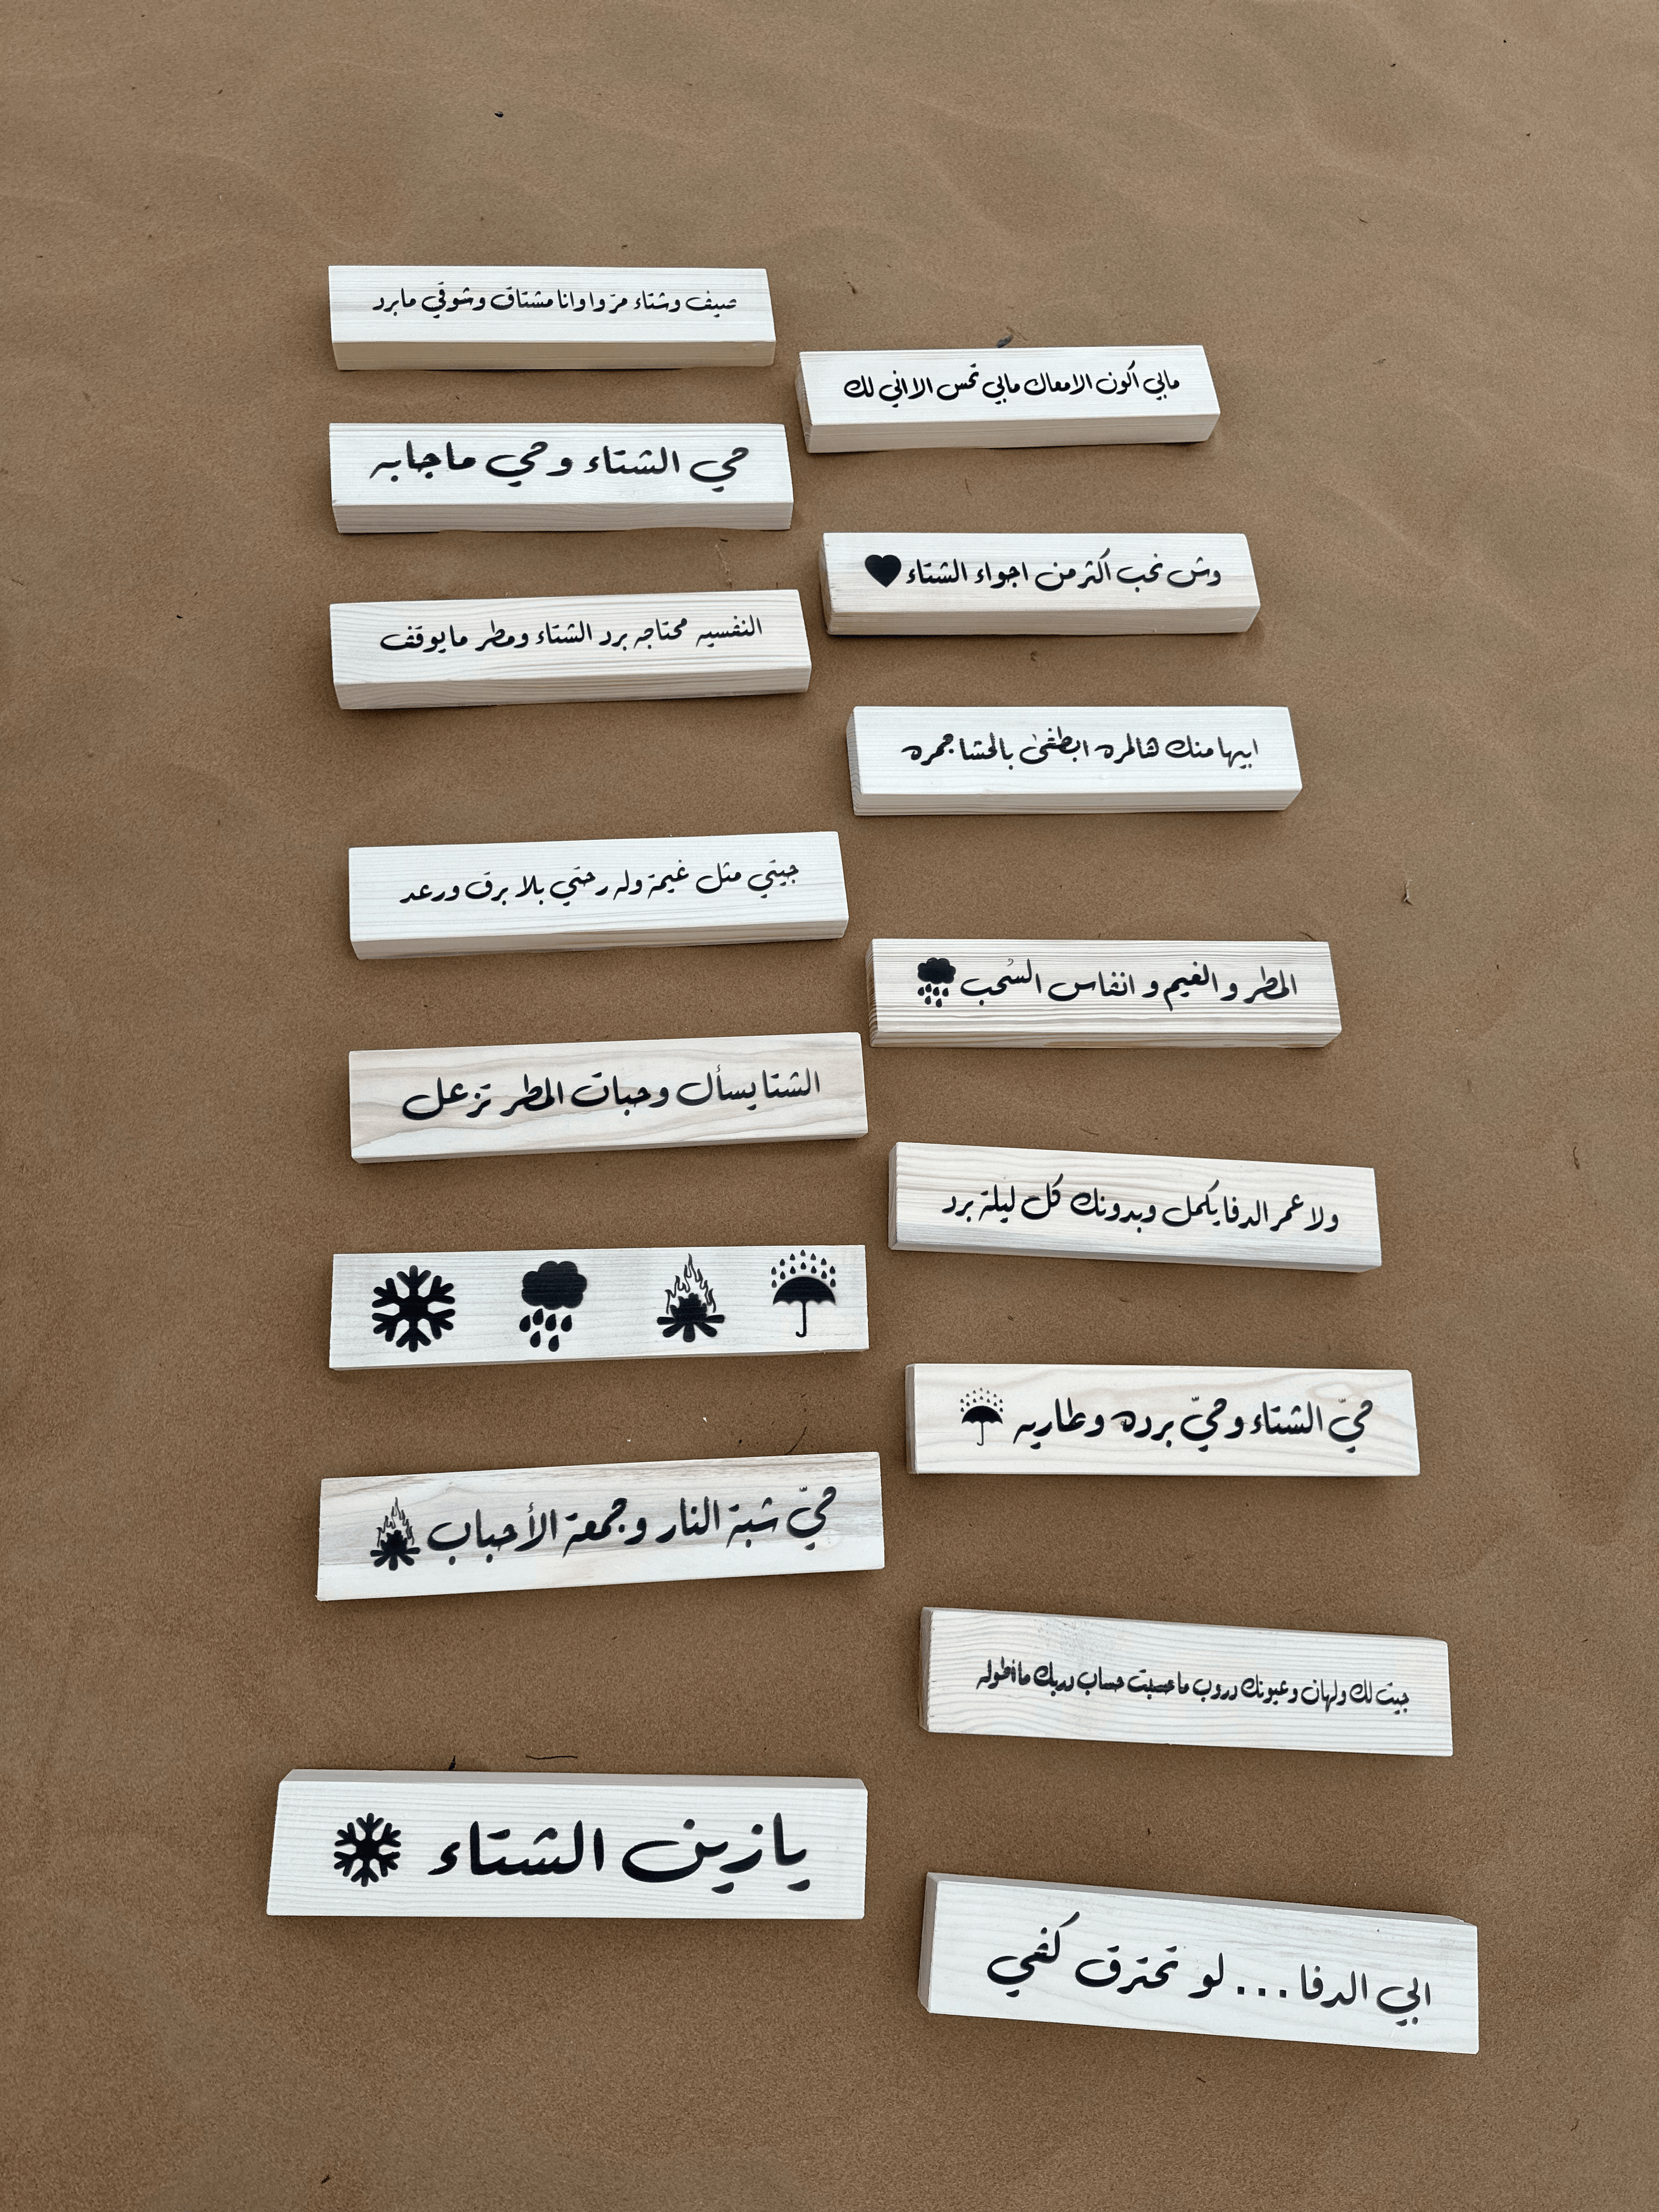 صيف وشتاء مرّوا وانا مشتاق وشوقي مابرد
مابي أكون الا معاك مابي تحس الا اني لك
حي الشتاء وحي ماجابه
وش نحب أكثر من اجواء الشتاء
النفسيه محتاجه برد الشتاء ومطر مايوقف
ابيها منك هالمره ابطفى بالحشا جمره
جيتي مثل غيمة وله رحتي بلا برق ورعد
المطر و الغيم و انفاس السُحب
الشتا يسأل وحبات المطر تزعل
ولا عمر الدفا يكمل وبدونك كل ليلة برد
حيّ الشتاء وحيّ برده وطاريه
حيّ شبة النار وجمعة الأحباب
جيت لك ولهان وعيونك دروب ما حسبت حساب دربك ما أطوله
يازين الشتاء
ابي الدفا... لو تحترق كفي